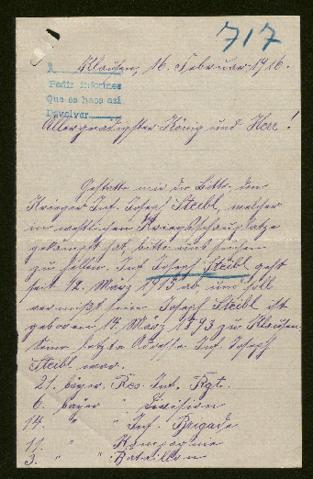 717
Klausen, 16. Februar 1916.
Pedir informes
Que se hace así
Devolver
Allergnädigster König und Herr!
Gestatte mir die Bitte, den
Krieger Inf. Joseph Steibl, welcher
im westlichen Kriegsschauplatze
gekämpft hat, bitte suchen
zu helfen. Inf. Joseph Steibl geht
seit 12. März 1915 ab und soll
vermißt sein. Joseph Steibl ist
geboren 14. März 1893 zu Klausen.
Seine letzte Adresse Inf. Joseph
Steibl war.
21. bayer. Res. Inf. Rgt.
6. bayer " Division
14. " " Inf. Brigade
11. " " Kompagnie
3. " " Bataillon